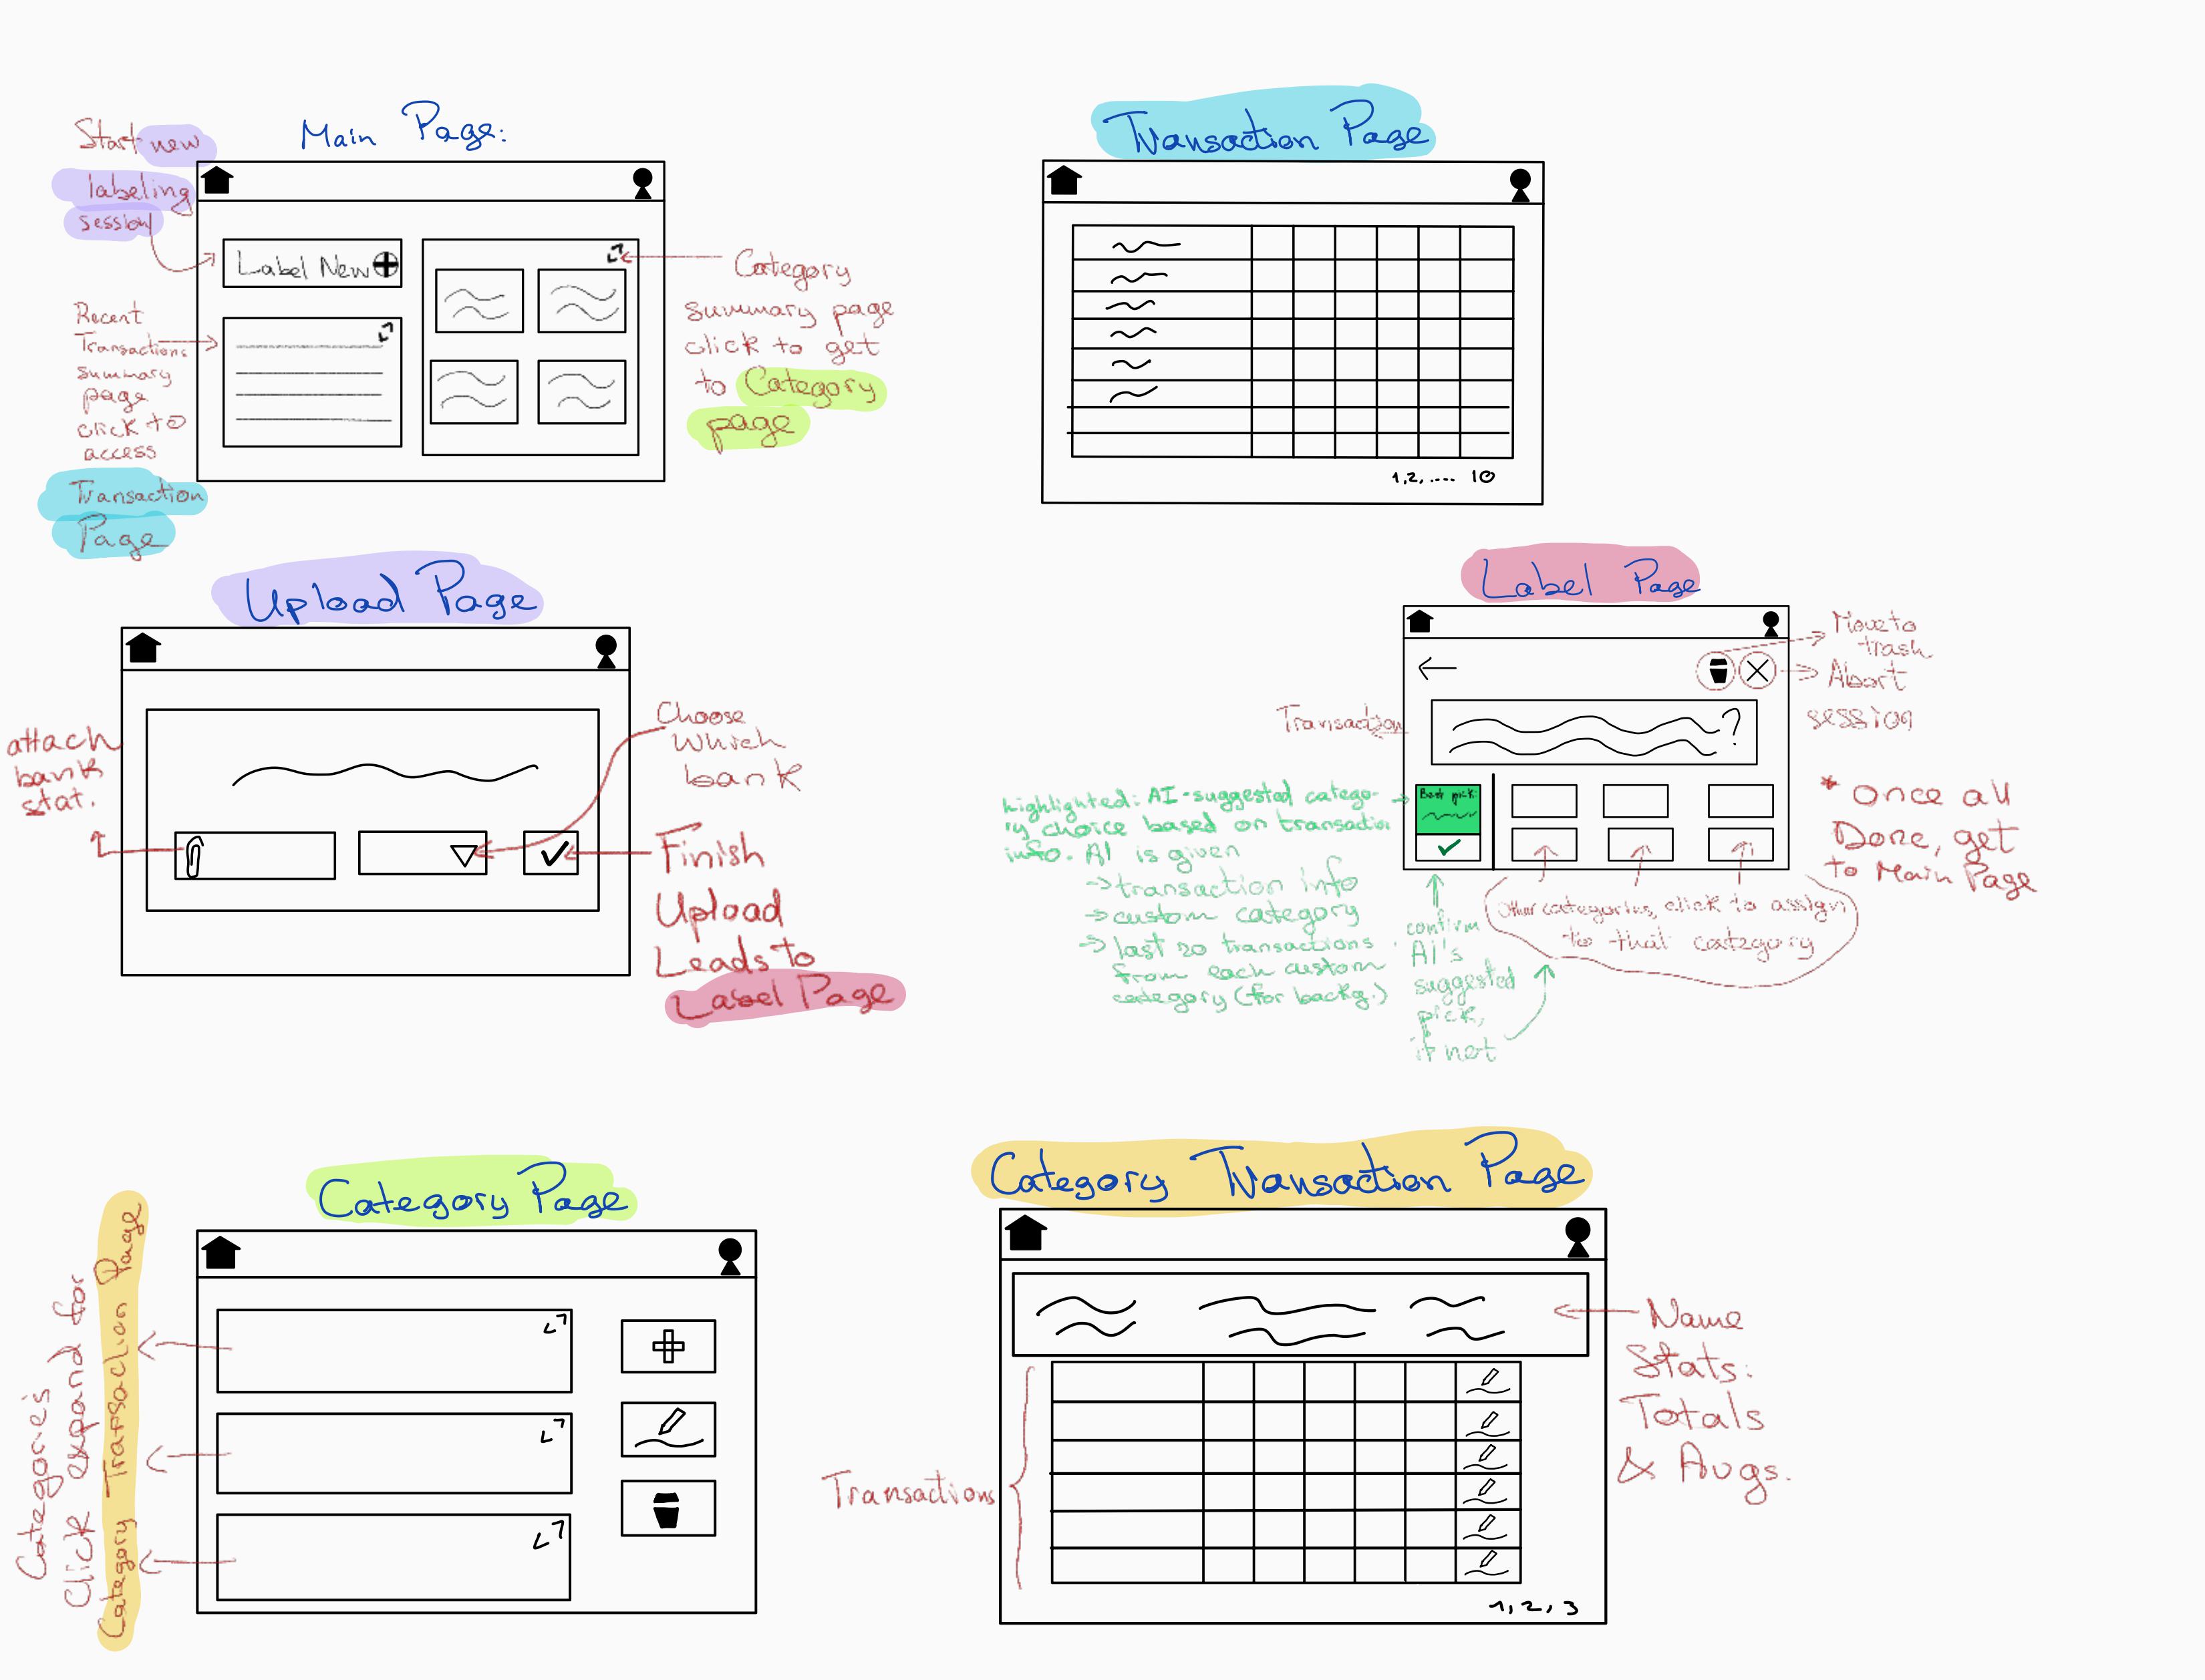 Main Page:
Start new
labeling
session
Label New
Recent
Transactions
summary
page
click to
access
Transaction
Page
Category
summary page
click to get
to Category
page
Transaction Page
1,2,.... 10
Upload Page
attach
bank
stat.
Choose
Which
bank
Finish
Upload
Leads to
Label Page
Label Page
Move to
trash
Abort
session
Transaction
?
Best pick:
highlighted: AI-suggested catego-
ry choice based on transaction
info. AI is given
→ transaction info
→ custom category
→ last 20 transactions
from each custom
category (for backg.)
confirm
AI's
suggested
pick,
if not
Other categories, click to assign
to that category
* Once all
Done, get
to Main Page
Category Page
Categories
Click expand for
Category Transaction Page
Category Transaction Page
Name
Stats:
Totals
& Avgs.
Transactions
1, 2, 3